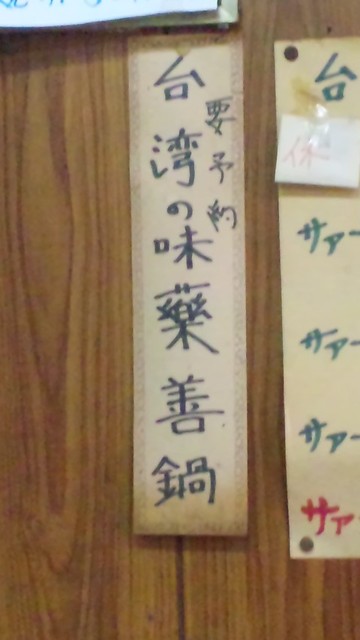 台湾の味藥善鍋
要予約
台
休
サァー
サァー
サァー
サァー